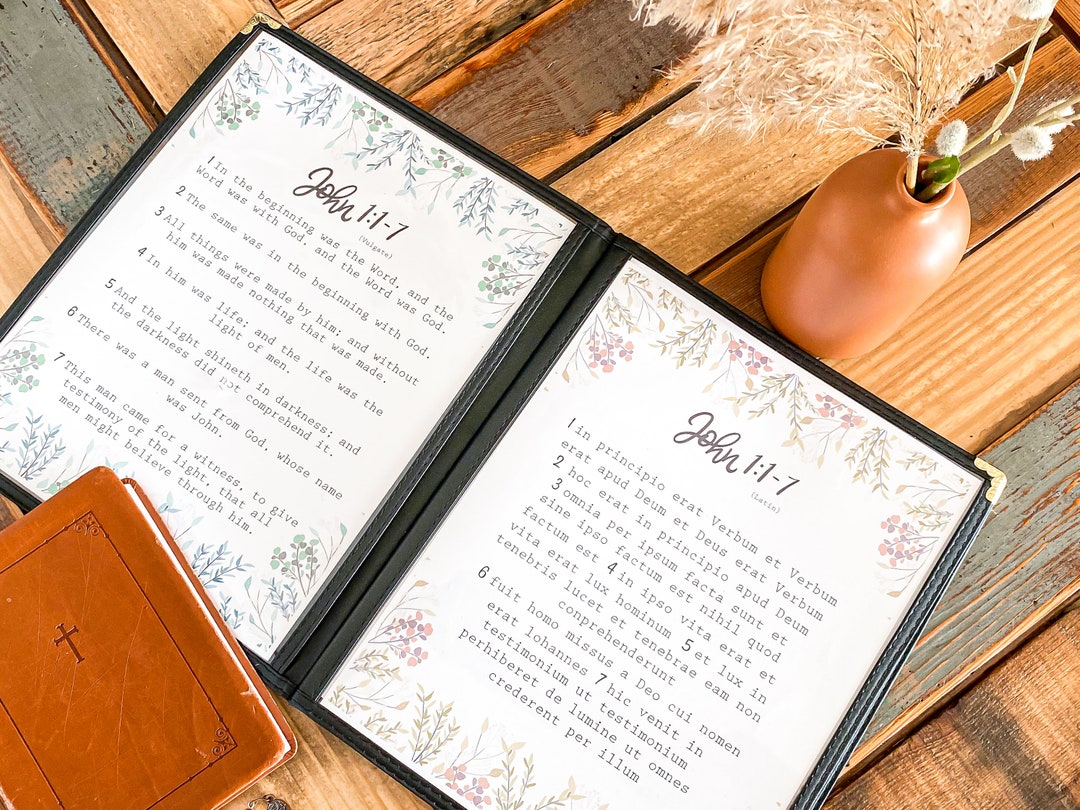 John 1:1-7
(Vulgate)
1 In the beginning was the Word, and the
Word was with God, and the Word was God.
2 The same was in the beginning with God.
3 All things were made by him; and without
him was made nothing that was made.
4 In him was life; and the life was the
light of men.
5 And the light shineth in darkness; and
the darkness did not comprehend it.
6 There was a man sent from God, whose name
was John.
7 This man came for a witness, to give
testimony of the light, that all
men might believe through him.
John 1:1-7
(Latin)
1 in principio erat Verbum et Verbum
erat apud Deum et Deus erat Verbum
2 hoc erat in principio apud Deum
3 omnia per ipsum facta sunt et
sine ipso factum est nihil quod
factum est 4 in ipso vita erat et
vita erat lux hominum 5 et lux in
tenebris lucet et tenebrae eam non
conprehenderunt
6 fuit homo missus a Deo cui nomen
erat Iohannes 7 hic venit in
testimonium ut testimonium
perhiberet de lumine ut omnes
crederent per illum